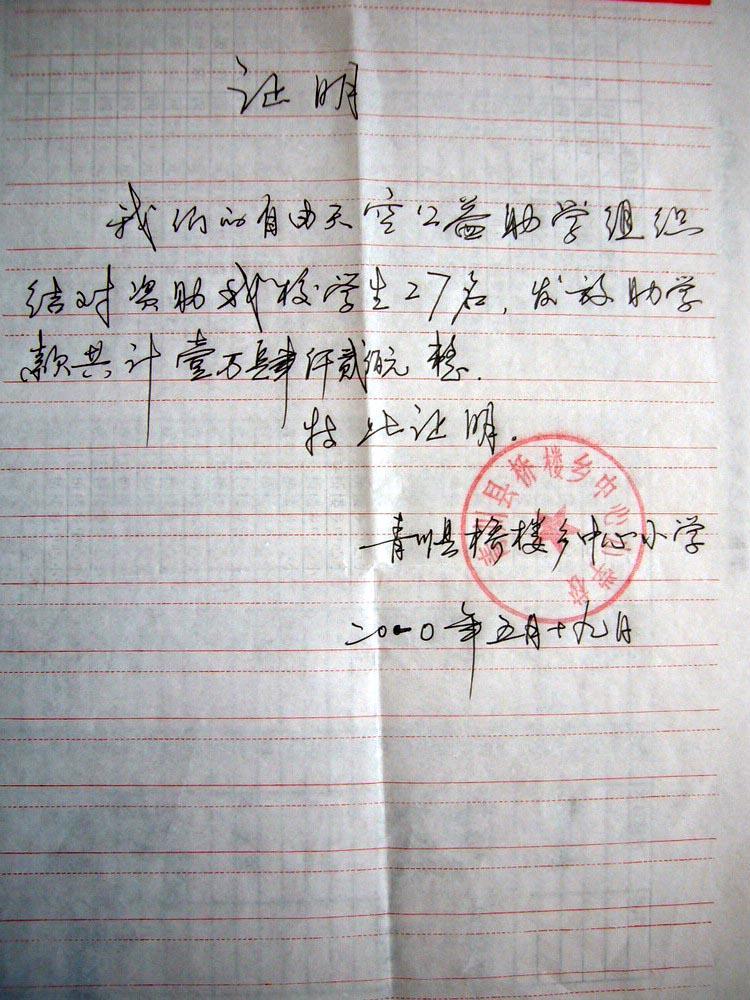 证明
我们的自由天空公益助学组织
结对资助我校学生27名，发放助学
款共计壹万肆仟贰佰元整.
特此证明.
青川县桥楼乡中心小学
青川县桥楼乡中心小学校
二〇一〇年五月十九日